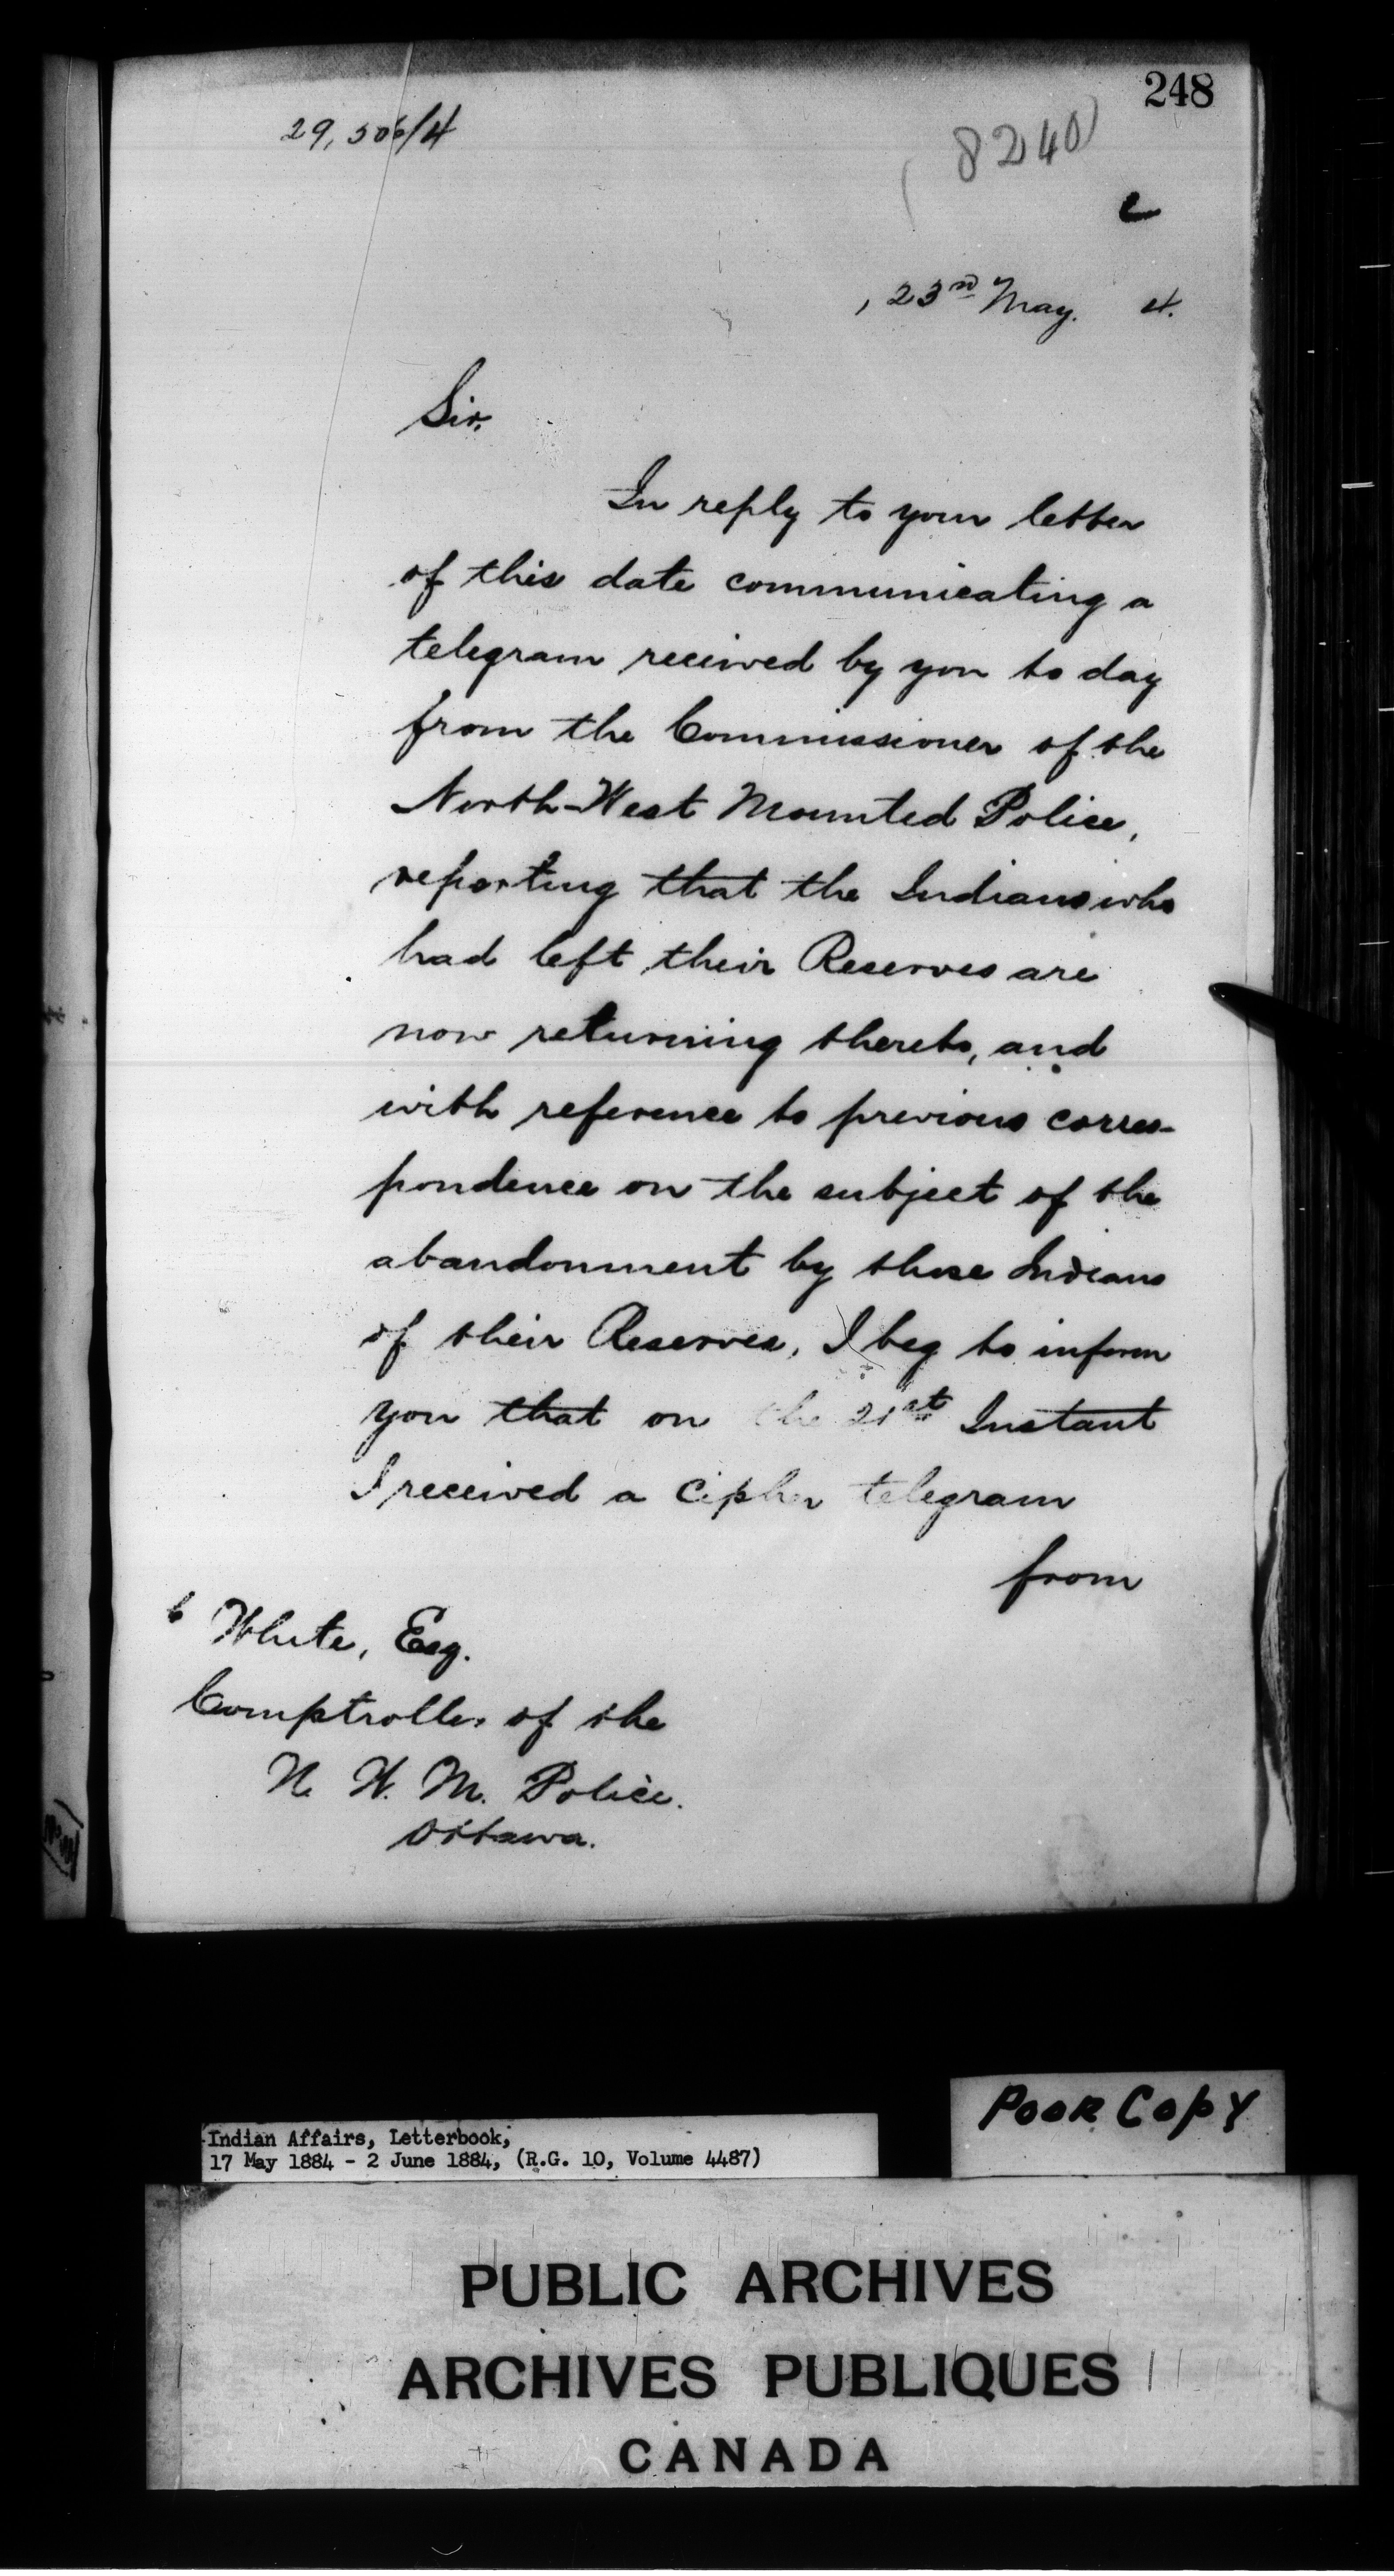 248
29,506/4
8240
, 23rd May. 4.
Sir,
In reply to your letter
of this date communicating a
telegram received by you to day
from the Commissioner of the
North-West Mounted Police,
reporting that the Indians who
had left their Reserves are
now returning thereto, and
with reference to previous corres-
pondence on the subject of the
abandonment by those Indians
of their Reserves, I beg to inform
you that on the 21st Instant
I received a Cipher telegram
from
White, Esq.
Comptroller of the
N. W. M. Police.
Ottawa.
POOR COPY
Indian Affairs, Letterbook,
17 May 1884 - 2 June 1884, (R.G. 10, Volume 4487)
PUBLIC ARCHIVES
ARCHIVES PUBLIQUES
CANADA